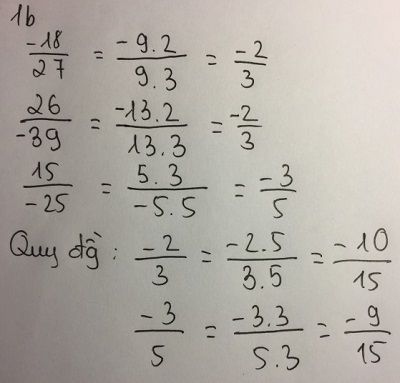 1b
-18/27 = -9.2/9.3 = -2/3
26/-39 = -13.2/13.3 = -2/3
15/-25 = 5.3/-5.5 = -3/5
Quy đg̀ : -2/3 = -2.5/3.5 = -10/15
-3/5 = -3.3/5.3 = -9/15